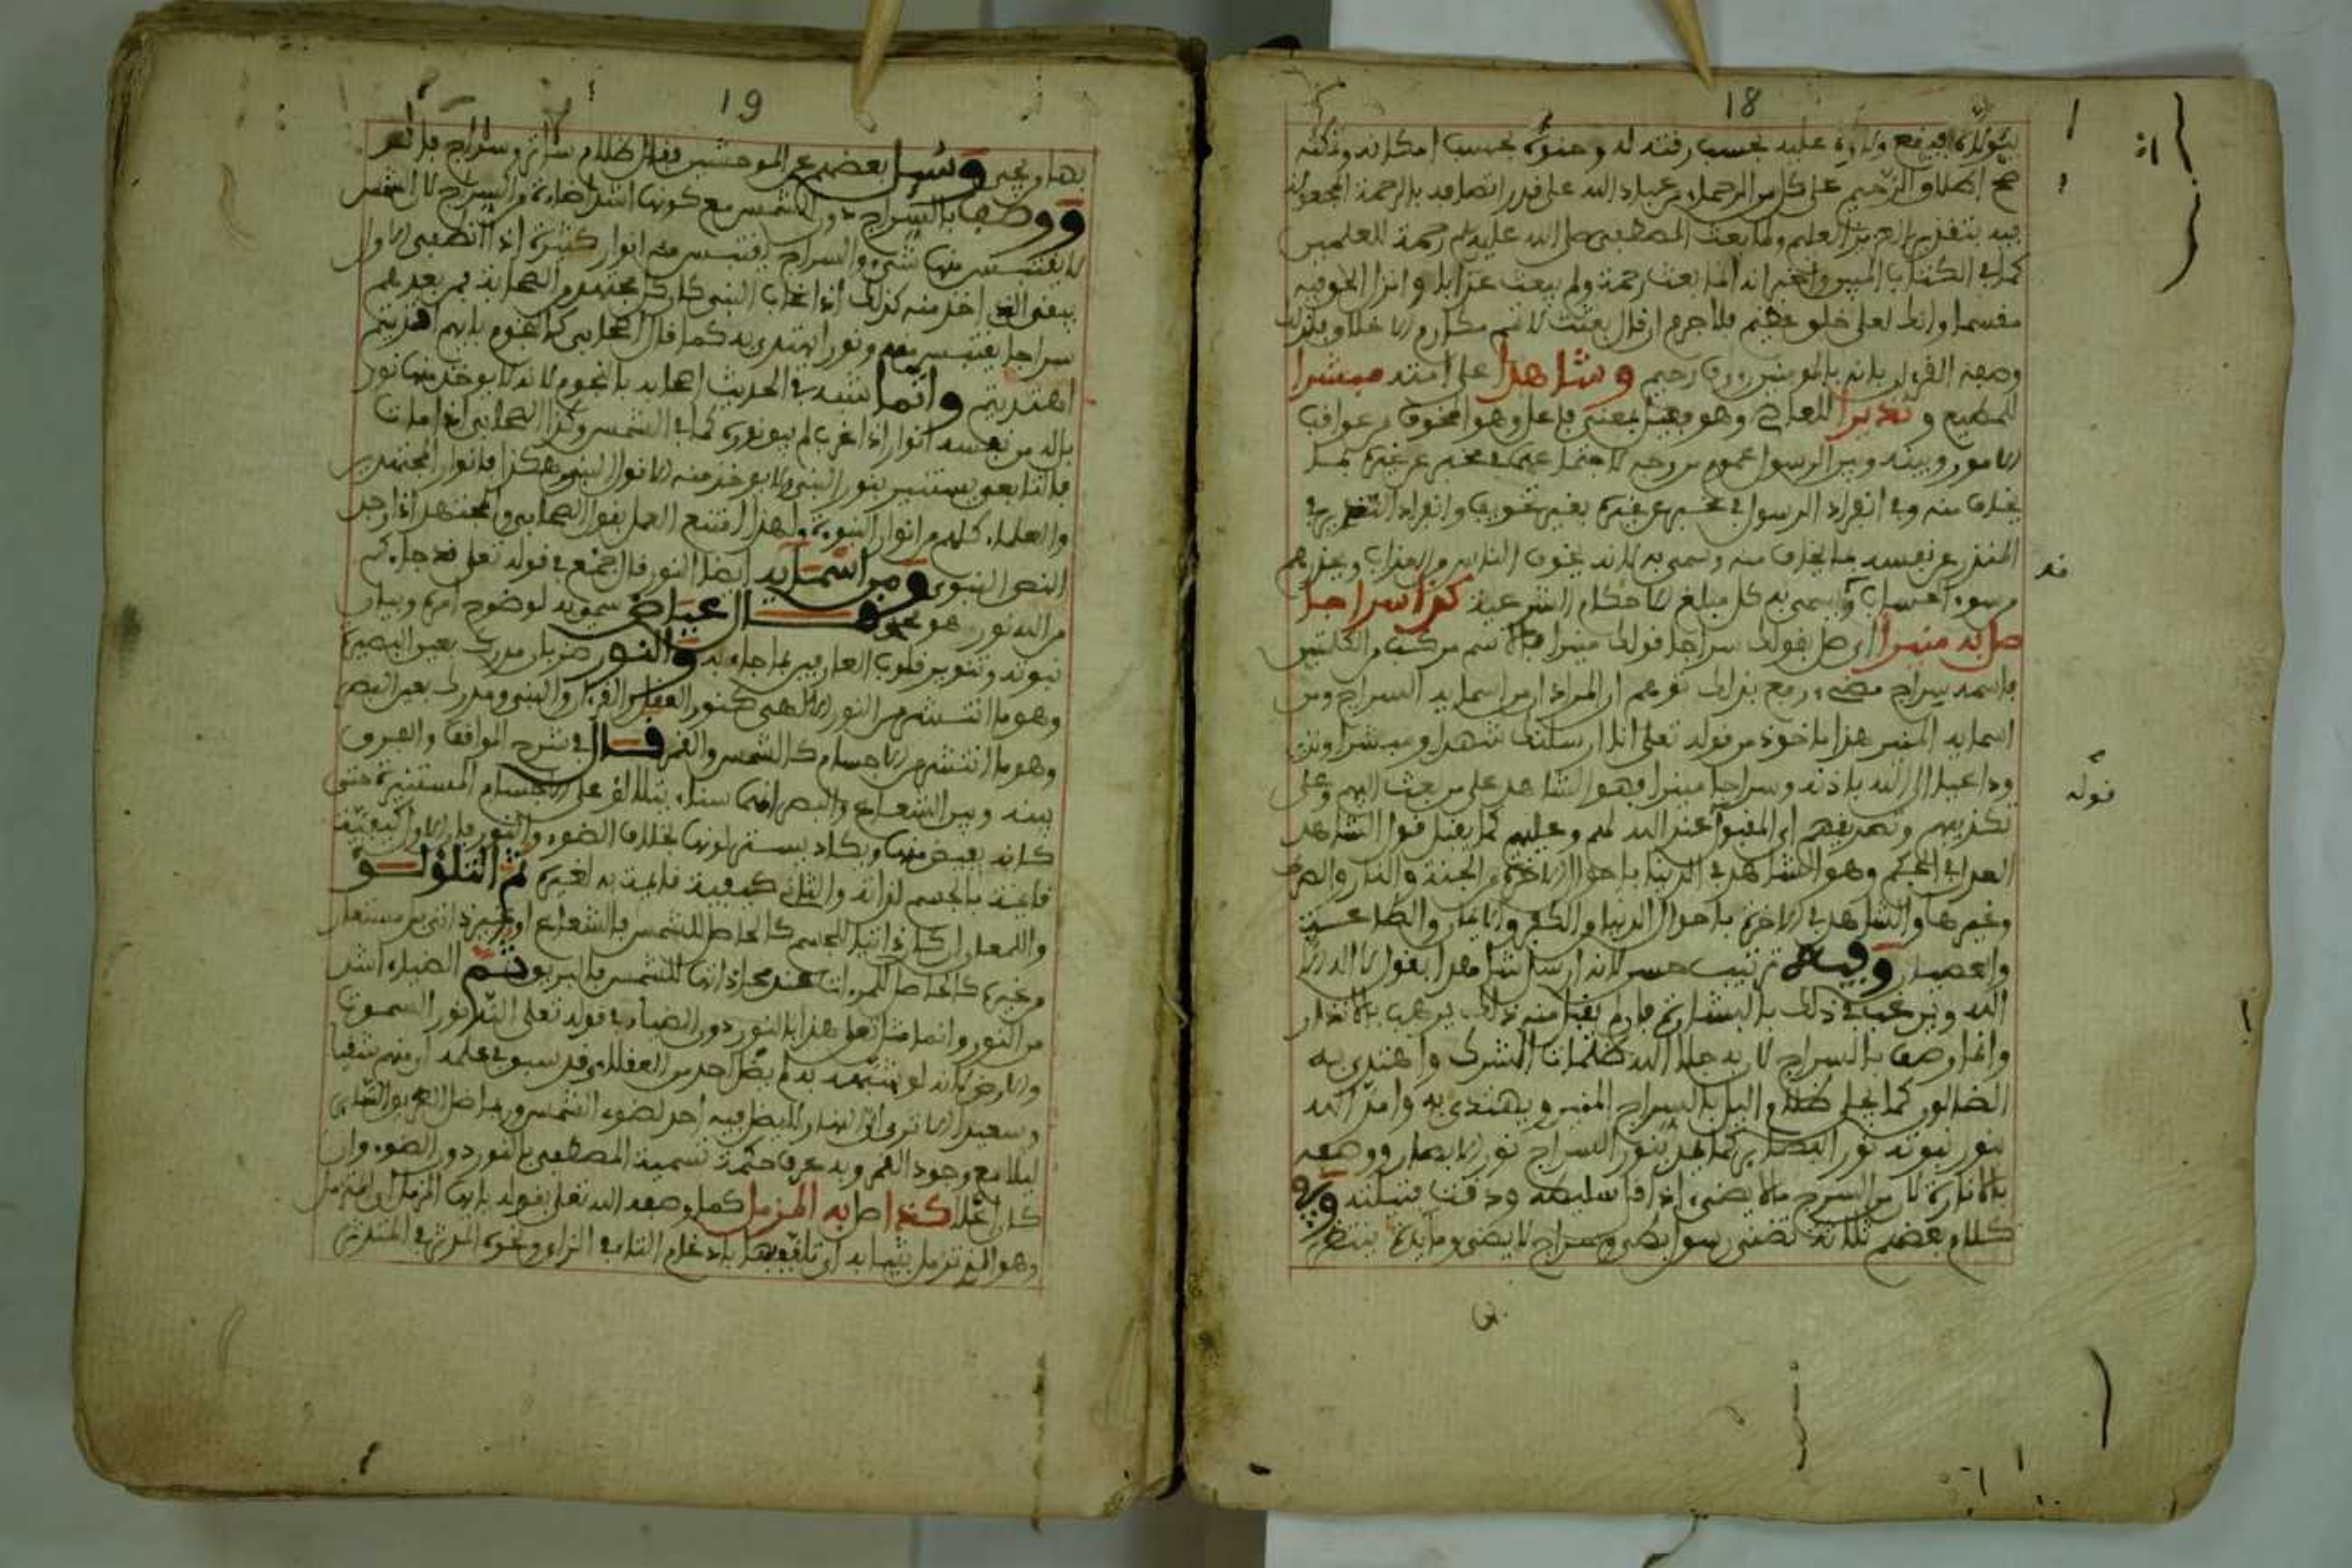 18
صح اطلاق الرحيم على كل من الرحماء من عباد الله على قدر اتصافه بالرحمة المجعولة
فيه بتقدير العزيز العليم ولما بعث المصطفى صلى الله عليه وسلم رحمة للعلمين
كما في الكتاب المبين واخبر انه انما بعث رحمة ولم يبعث عذابا وانزل الحق فيه
مقسما وانك لعلى خلق عظيم فلا جرم ان قال بعثت لاتمم مكارم الاخلاق ولذلك
وصفه القرءان بانه بالمومنين رءوف رحيم وشاهدا على امته مبشرا
للمطيع ونذيرا للعاصي وهو فعيل بمعنى فاعل وهو المخوف من عواقب
الامور وبينه وبين الرسول عموم من وجه لاجتماعهما في مخبر عن غيره بما
يخاف منه وفي انفراد الرسول في مخبر عن غيره بغير تخويف وانفراد النذير في
المنذر عن نفسه بما يخاف منه وسمي به لانه يخوف الناس من العذاب ويحذرهم
من سوء الحساب ويسمى به كل مبلغ الاحكام الشرعية كذا سراجا
صل به منيرا اي صل بقولك سراجا قولك منيرا فالاسم مركب من الكلمتين
فاسمه سراج مضيء رفع بذلك توهم ان المراد ان من اسمايه السراج ومن
اسمايه المنير هذا ماخوذ من قوله تعلى انا ارسلنك شهدا ومبشرا ونذيرا
وداعيا الى الله باذنه وسراجا منيرا فهو الشاهد على من بعث اليهم وعلى
تكذيبهم وتصديقهم اي المقبول عند الله لهم وعليهم كما يقبل قول الشاهد
العدل في الحكم وهو الشاهد في الدنيا باحوال الاخرة من الجنة والنار والصراط
وغيرها والشاهد في الاخرة باحوال الدنيا والكفر والايمان والطاعة
والعصيان وفيه ترتيب حسن لانه ارسل شاهدا بقول لا اله الا
الله ويرغب في ذلك بالبشارة فان لم يقبل منه ذلك يرهب بالانذار
وانما وصف بالسراج لان به جلا الله ظلمات الشرك واهتدى به
الضالون كما يجلى ظلام اليل بالسراج المنير ويهتدى به وامد الله
بنور نبوته نور البصاير كما يمد بنور السراج نور الابصار ووصفه
بالانارة لان من السرج ما لا يضيء اذا قل سليطه ودقت فتيلته وفي
كلام بعضهم ثلاثة تضني رسول بطيء وسراج لا يضيء ومايدة ينتظر
فد
قوله
19
بها من يجيء وسيل بعضهم عن الموحشين فقال ظلام ساتر وسراج فاتر
ووصف بالسراج دون الشمس مع كونها اشد اضاءة من السراج لان الشمس
لا يقتبس منها شيء والسراج يقتبس منه انوار كثيرة اذا انطفى الاول
يبقى الذي اخذ منه كذلك اذا غاب النبي كان كل مجتهد من الصحابة فمن بعدهم
سراجا يقتبس منه ونورا يهتدى به كما قال اصحابي كالنجوم بايهم اقتديتم
اهتديتم وانما شبه في الحديث اصحابه بالنجوم لانه لا يوخذ منها نور
بل له من نفسه انوار اذا غرب لم يبق نوره كما في الشمس وكذا الصحابي اذا مات
فالتابعي يستنير بنور النبي ولا يوخذ منه الا نور النبي وهكذا فانوار المجتهدين
والعلماء كلهم من انوار النبوة ولهذا امتنع العمل بقول الصحابي والمجتهد اذا وجد
النص النبوي ومن اسمايه ايضا النور قال جمع في قوله تعلى قد جاءكم
من الله نور هو محمد وقال عياض سمي به لوضوح امره وبيان
نبوته وتنوير قلوب العارفين بما جاء به والنور ضربان مدرك بعين البصيرة
وهو ما انتشر من النور الالاهي كنور العقل والقرءان والنبي ومدرك بعين البصر
وهو ما انتشر من الاجسام كالشمس والقمر قال في شرح المواقف والفرق
بينه وبين الشعاع والبصر انهما سناء يتلالؤ على الاجسام المستنيرة حتى
كانه يفيض منها ويكاد يستر لونها بخلاف الضوء والنور فان الاول كيفية
قايمة بالجسم لذاته والثاني كيفية قايمة به لغيره ثم التلؤلؤ
واللمعان ان كان ذاتيا للجسم كالحاصل للشمس فالشعاع او غير ذاتي بل مستعار
من غيره كالحاصل للمرءات عند محاذاتها للشمس فالبريق ثم الضياء اشد
من النور وانما مثل تعلى هداه بالنور دون الضياء في قوله تعلى الله نور السموت
والارض لانه لو شبهه به لم يضل احد من العقلاء وقد سبق في علمه ان منهم شقيا
وسعيدا الا ترى الى النهار لا يضل فيه احد لضوء الشمس وربما ضل الطريق الساري
ليلا مع وجود القمر وبه عرف حكمة تسمية المصطفى بالنور دون الضوء وان
كان اعلا كذا صل به المزمل كما وصفه الله تعلى بقوله يا ايها المزمل
وهو الذي تزمل بثيابه اي تلفف بها بادغام التاء في الزاي ونحوه المدثر في المتدثر